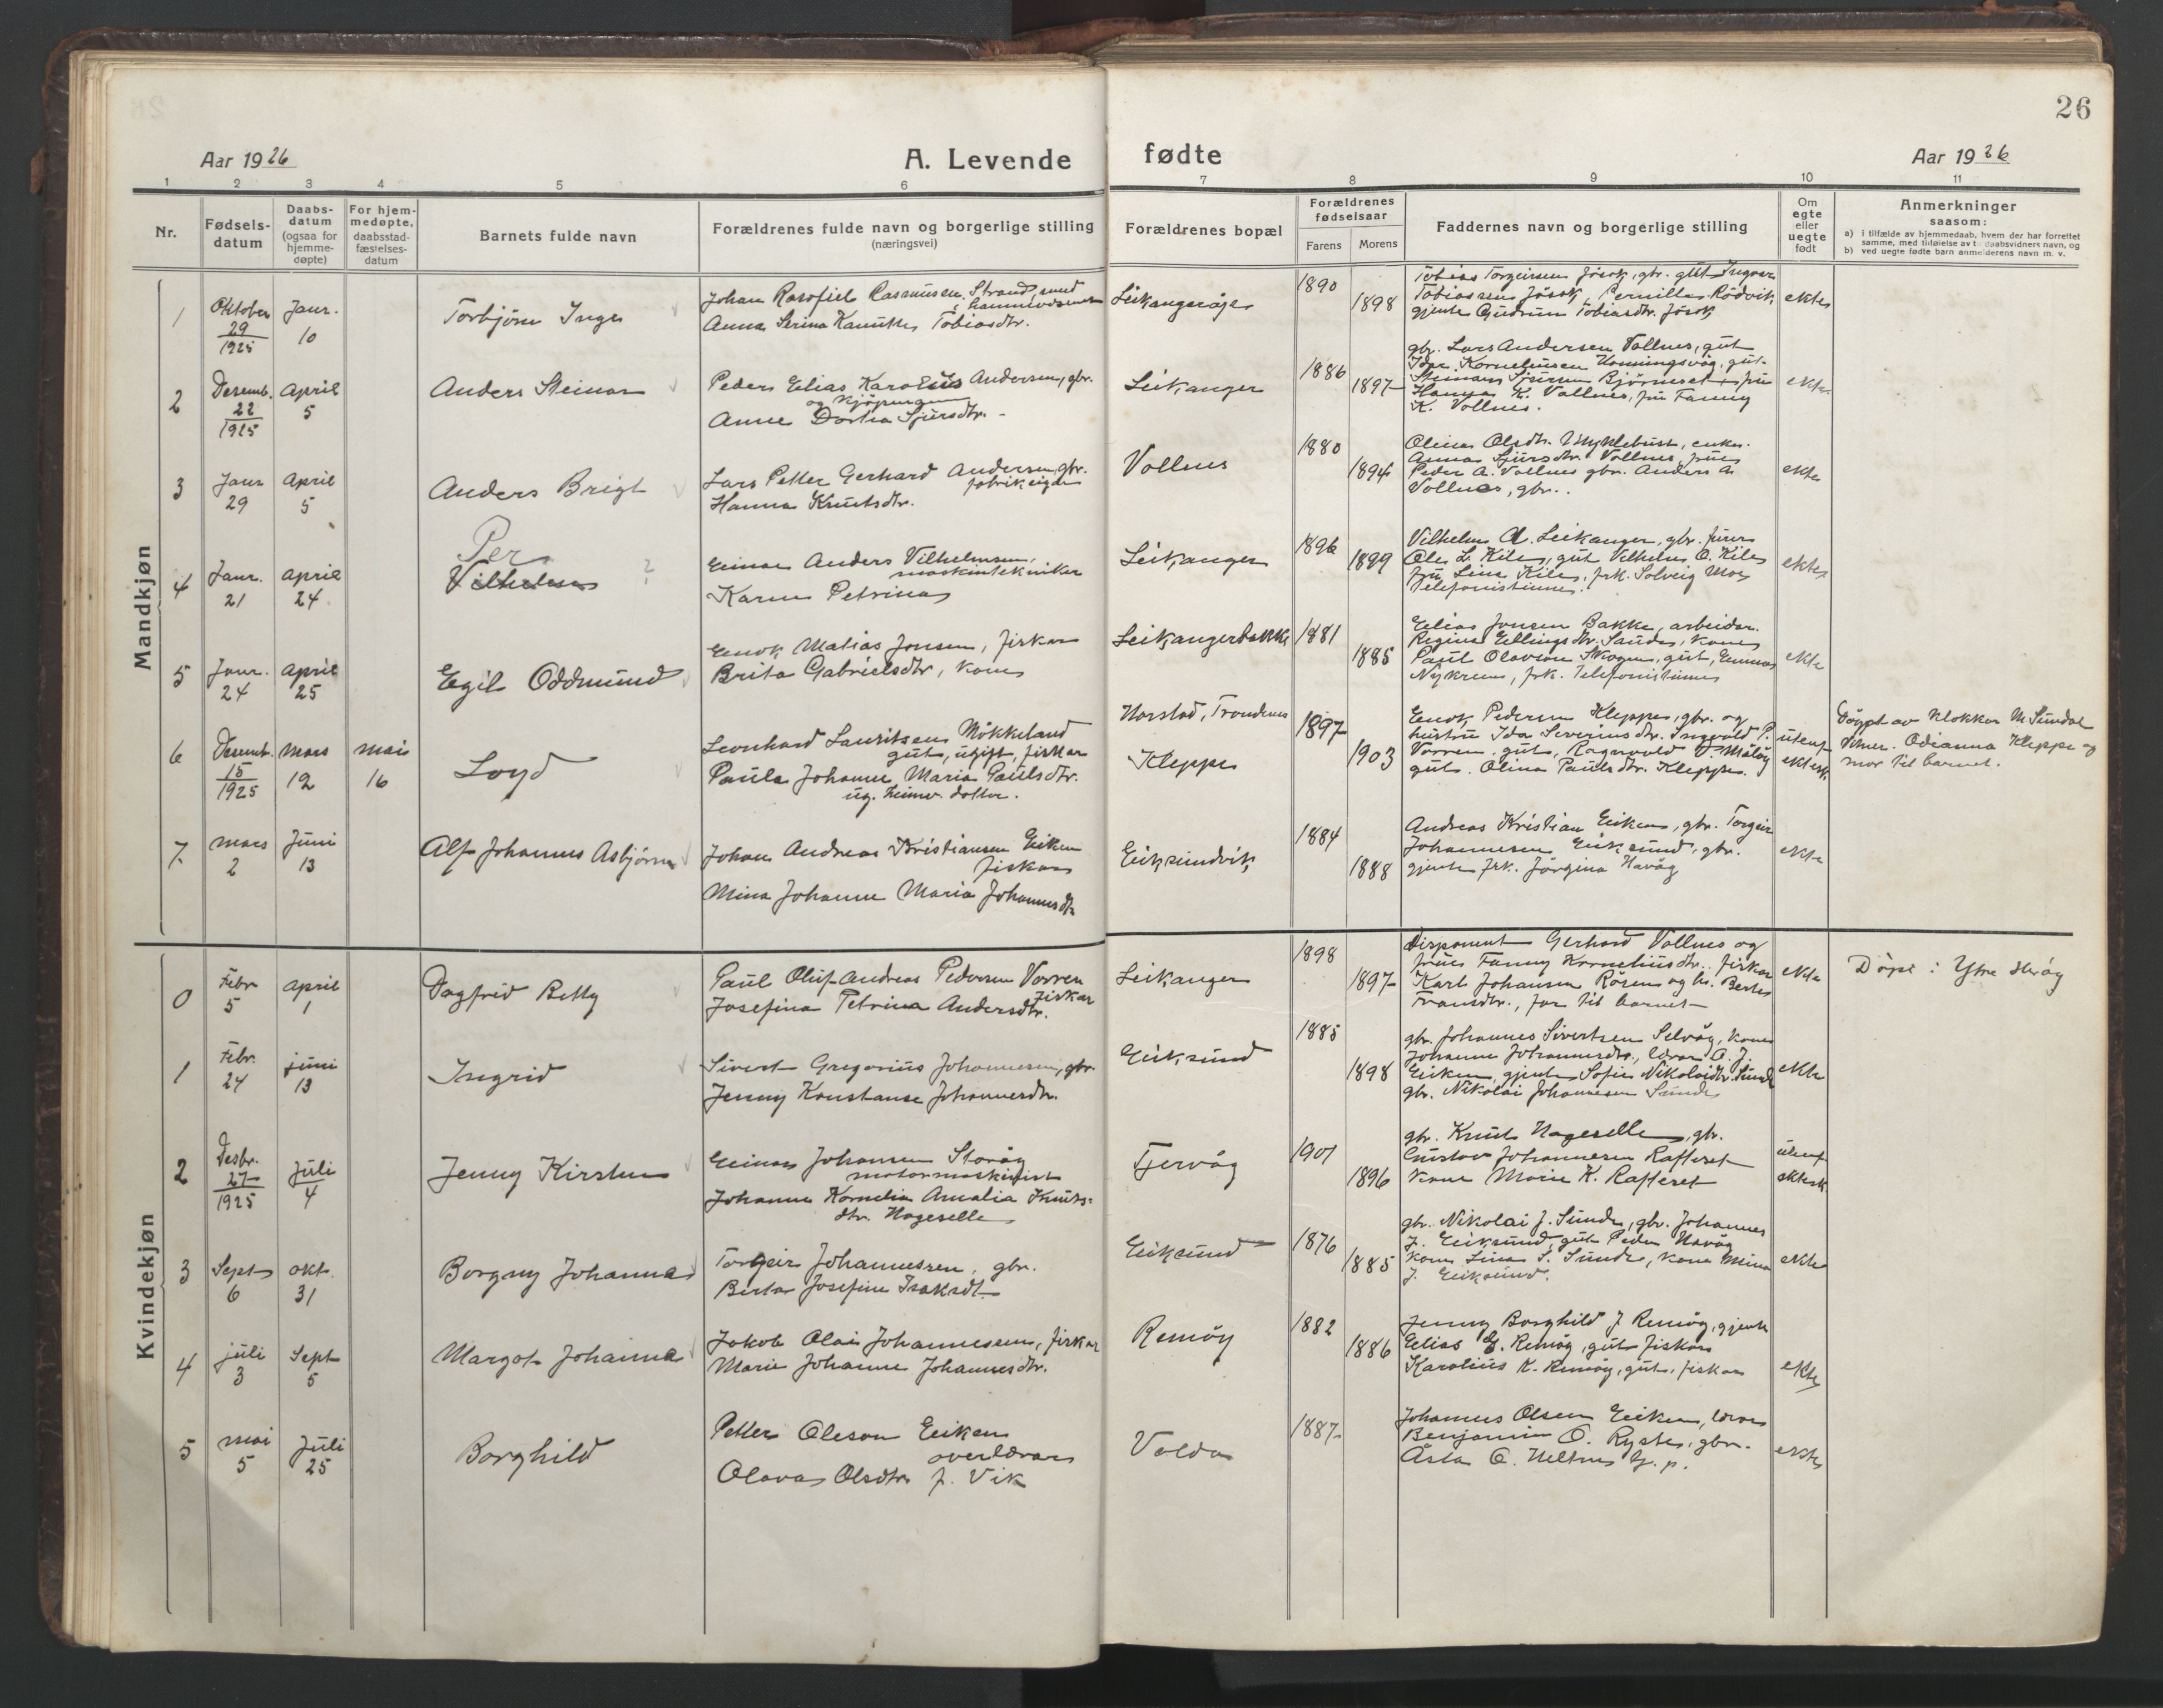 26
Aar 1926
A. Levende
fødte
Aar 1926
1 2 3 4 5 6 7 8 9 10 11
Nr.
Fødsels-
datum
Daabs-
datum
(ogsaa for
hjemme-
døpte)
For hjem-
medøpte,
daabsstad-
fæstelses-
datum
Barnets fulde navn
Forældrenes fulde navn og borgerlige stilling
(næringsvei)
Forældrenes bopæl
Forældrenes
fødselsaar
Farens Morens
Faddernes navn og borgerlige stilling
Om
egte
eller
uegte
født
Anmerkninger
saasom:
a) i tilfælde av hjemmedaab, hvem der har forrettet
samme, med tilføielse av to daabsvidners navn, og
b) ved uegte fødte barn anmelderens navn m. v.
Mandkjøn
1
Oktober
29
1925
Janr.
10
Torbjörn Inge
Johan Rasmussen, Strand
Anna Serina Tobiasdtr.
Leikanger
1890
1898
Tobias Torgeirsen Jösok, gbr. gut Ingvar
Tobiassen Jösok, Pernille Rödvik,
gjente Gudrun Tobiasdtr. Jösok
ekte
2
Desemb.
22
1925
April
5
Anders Steinar
Peder Elias Karolius Andersen, gbr.
og
Anne Dortea Sjursdtr.
Leikanger
1886
1897
gbr. Lars Andersen Vollnes, gut
Korneliussen Honningsvåg, gut
Steinar Sjursen Björneset, fru
Hanna K. Vollnes, fru Fanny
K. Vollnes.
ekte
3
Janr
29
April
5
Anders Brigt
Lars Petter Gerhard Andersen, gbr.
fabrikeigar
Hanna Knutsdtr.
Vollnes
1880
1894
Olina Olsdtr. Myklebust, enke.
Anna Sjursdtr. Vollnes, frue
Peder A. Vollnes gbr. Anders A.
Vollnes, gbr.
ekte
4
Janr.
21
April
24
Per
Vilhelm
?
Einar Anders Vilhelmsen,
maskintekniker
Karen Petrina
Leikanger
1896
1899
Vilhelm A. Leikanger, gbr.
Ole L. Kile, gut Vilhelm O. Kile
fru Lina Kile, frk. Solveig Moe
Telefonistinne.
ekte
5
Janr.
24
April
25
Egil Oddmund
Enok Matias Jonsen, fiskar
Brita Gabrielsdtr, kone
Leikangerbakke
1881
1885
Elias Jonsen Bakke, arbeidar.
Regina Ellingsdtr. Sande, kone
Paul Olavson Skogen, gut, Emma
Nykrem, frk. Telefonistinne
ekte
6
Desemb.
15
1925
mars
12
mai
16
Loyd
Leonhard Lauritsen Mökkeland
gut, ugift, fiskar
Paula Johanne Maria Paulsdtr.
ug. heimev. dotter.
Harstad, Trondenes
Kleppe
1897
1903
Enok Pedersen Kleppe, gbr. og
hustru Ida Severinsdtr. Ingvald P.
Vorren, gut, Ragnvald O. Måløy
gut. Olina Paulsdtr. Kleppe.
utenf
ektesk.
Döypt av klokkar M. Sundal
Vitner. Odianna Kleppe og
mor til barnet.
7
mars
2
Juni
13
Alf Johannes Asbjörn
Johan Andreas Kristiansen Eiken
fiskar
Mina Johanne Maria Johannesdtr
Eiksundvik
1884
1888
Andreas Kristian Eiken, gbr. Torgeir
Johannesen Eiksund, gbr.
gjente frk. Jörgina Havåg
ekte
Kvindekjøn
0
Febr
5
April
1
Dagfrid Betty
Paul Oluf Andreas Pedersen Vorren
fiskar
Josefina Petrina Andersdtr.
Leikanger
1898
1897
Disponent Gerhard Vollnes og
frue Fanny Korneliusdtr. fiskar
Karl Johansen Røsen og h. Berte
Fransdtr., far til barnet
ekte
Döpt i Ytre Herøy
1
Febr.
24
juni
13
Ingrid
Sivert Gregorius Johannesen, gbr.
Jenny Konstanse Johannesdtr.
Eiksund
1885
1898
gbr. Johannes Sivertsen Selvåg, kone
Johanne Johannesdtr., lærar O. J.
Eiken, gjente Sofie Nikolaidtr. Sunde
gbr. Nikolai Johannesen Sunde
ekte
2
Desbr.
27
1925
Juli
4
Jenny Kirsten
Einar Johansen Storåg
motormaskinist
Johanne Kornelia Amalia Knuts-
dtr. Hageselle
Tjervåg
1901
1896
gbr. Knut Hageselle, gbr.
Gustav Johannesen Rafteset
Kone Marie K. Rafteset
utenf
ektesk.
3
Sept
6
okt.
31
Borgny Johanna
Torgeir Johannessen, gbr.
Berta Josefine Isaksdt.
Eiksund
1876
1885
gbr. Nikolai J. Sunde, gbr. Johannes
J. Eiksund, gut Peder Havåg
kone Lina S. Sunde, kone Mina
J. Eiksund.
ekte
4
juli
3
Sept
5
Margot Johanna
Jakob Olai Johannessen, fiskar
Marie Johanne Johannesdtr.
Remöy
1882
1886
Jenny Borghild J Remöy, gjente
Elias E. Remöy, gut fiskar
Karolius K. Remöy, gut, fiskar
ekte
5
mai
5
Juli
25
Borghild
Petter Oleson Eiken
overlærar
Olava Olsdtr f. Vik
Volda
1887
Johannes Olsen Eiken, lærar
Benjamin O. Ryste, gbr.
Åsta O.
ekte